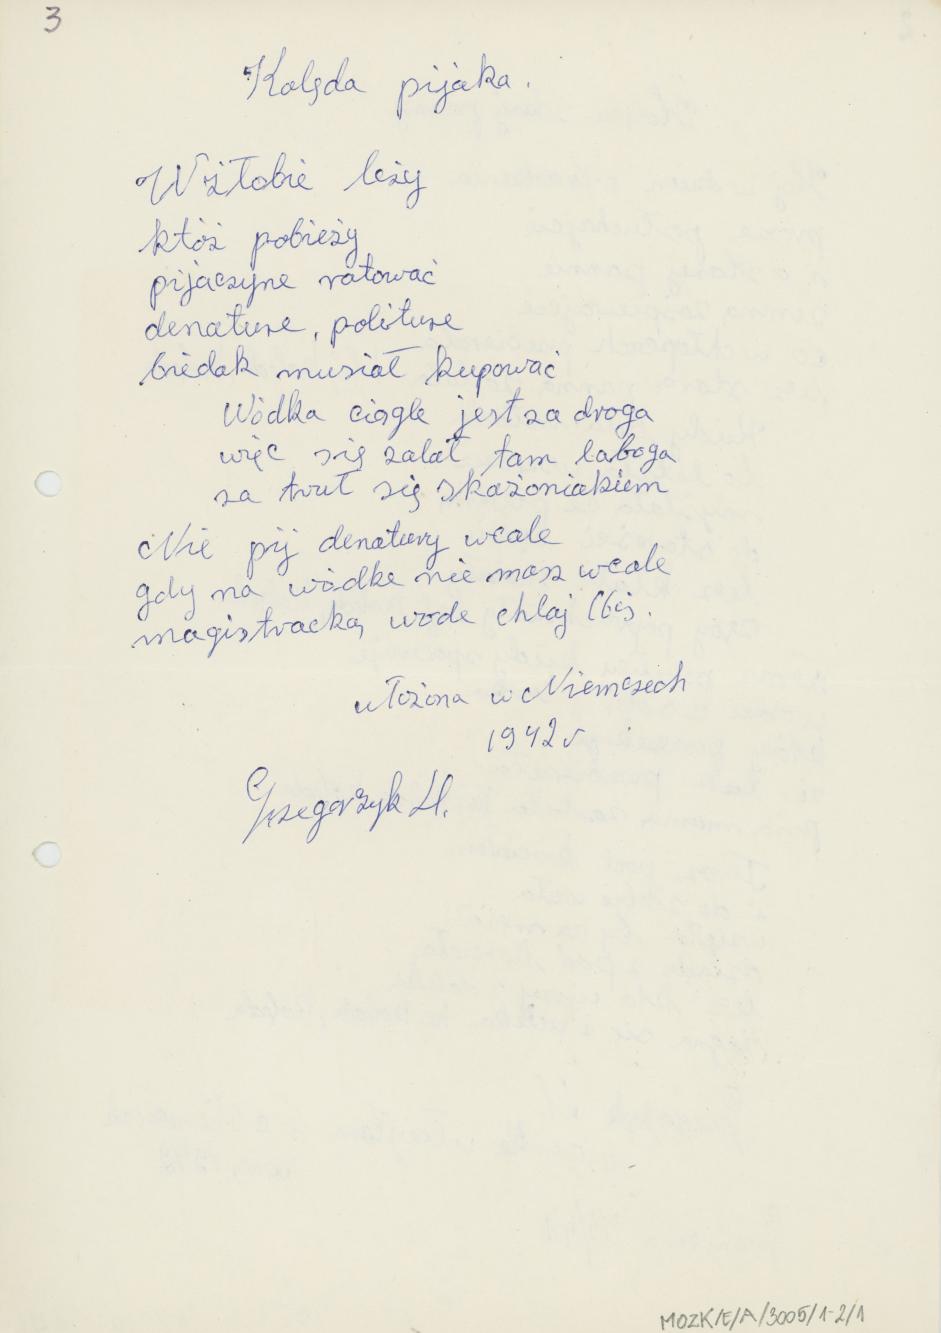 3
Kolęda pijaka.
W żłobie leży
któż pobieży
pijaczyne ratować
denature, politure
biedak musiał kupować
Wódka ciągle jest za droga
więc się zalał tam laboga
za truł się skażoniakiem
Nie pij denatury wcale
gdy na wódke nie masz wcale
magistracką wode chlaj (bis.
ułożona w Niemczech
1942 r
Grzegorzyk H.
MOZK/E/A/3005/1-2/1